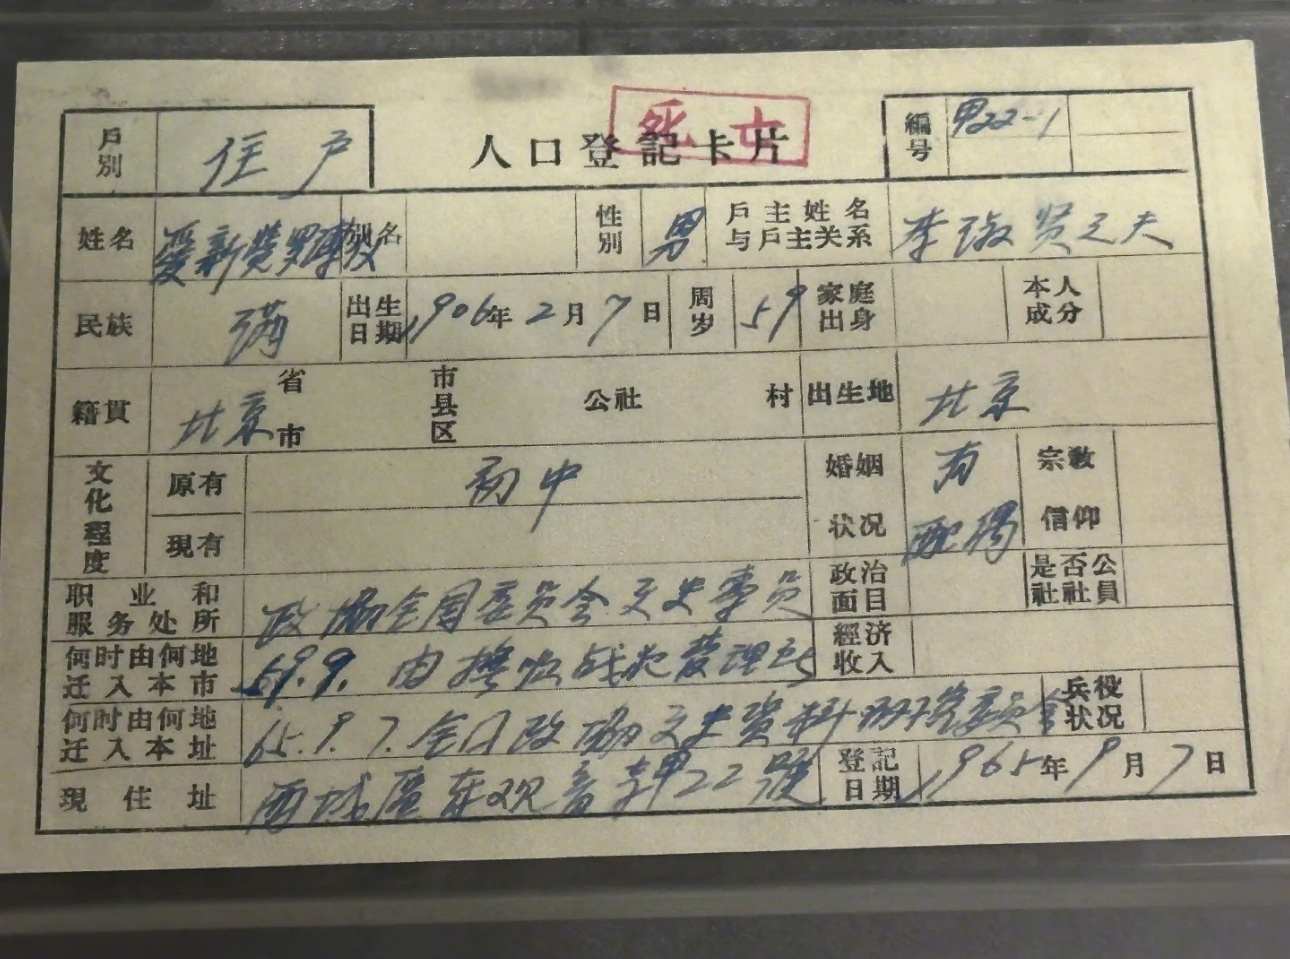 死亡
戶別 住戶 人口登記卡片 編号 甲22-1
姓名 愛新覚罗溥儀 別名 性別 男 戶主姓名与戶主关系 李淑贤之夫
民族 满 出生日期 1906年2月7日 周岁 59 家庭出身 本人成分
籍貫 北京 省市 市县区 公社 村 出生地 北京
文化程度 原有 初中 婚姻状况 有配偶 宗教信仰
現有
职业和服务处所 政协全国委员会文史专员 政治面目 是否公社社員
何时由何地迁入本市 59.9. 由撫順战犯管理所 經济收入
何时由何地迁入本址 65.9.7. 全口政协文史資料研究委员会 兵役状况
現住址 西城區东观音寺甲22號 登記日期 1965年9月7日